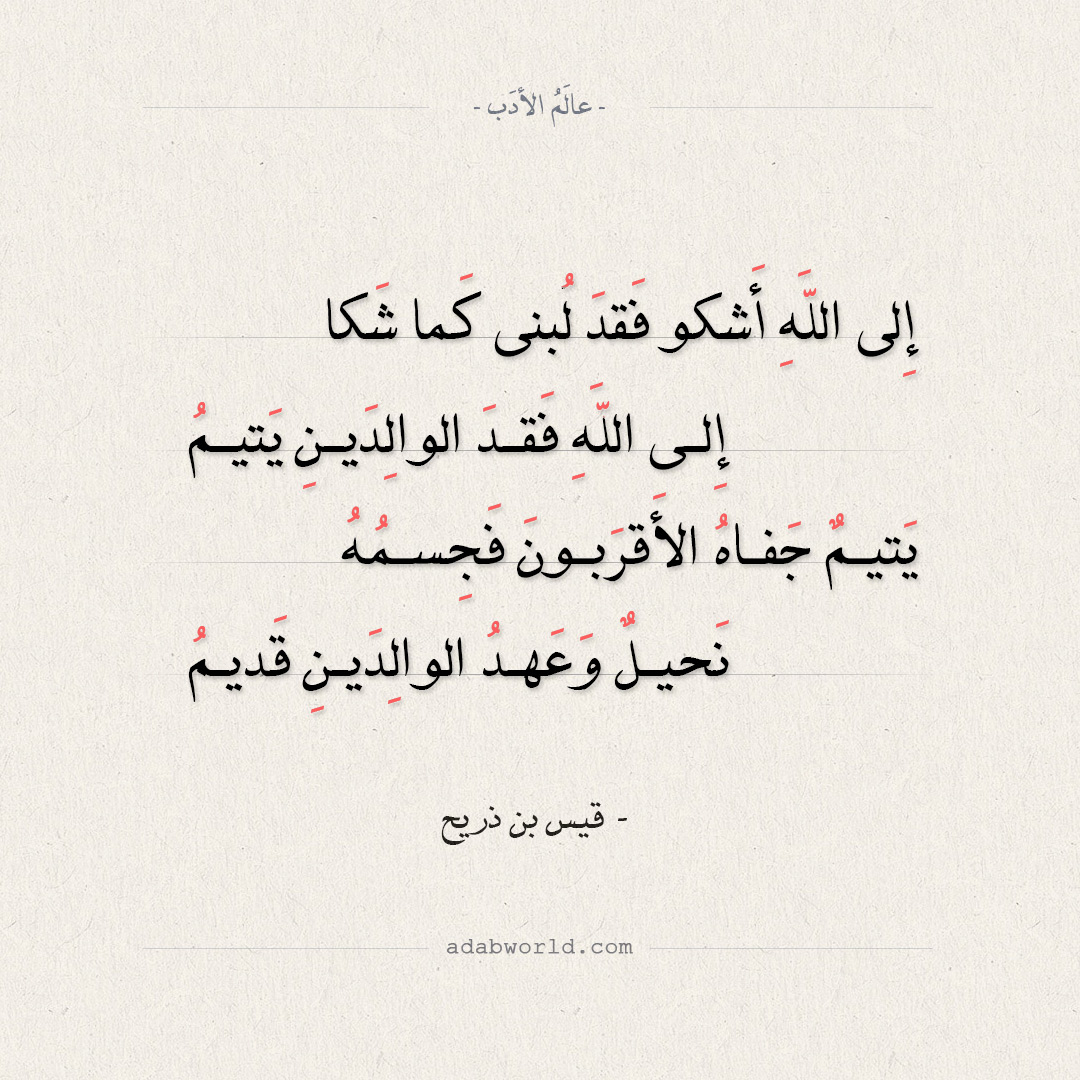 - عالَمُ الأدَب -
إِلى اللَّهِ أَشكو فَقدَ لُبنى كَما شَكا
إِلـى اللَّهِ فَقـدَ الوالِدَيـنِ يَتيـمُ
يَتيـمٌ جَفـاهُ الأَقرَبـونَ فَجِسـمُهُ
نَحيـلٌ وَعَهـدُ الوالِدَيـنِ قَديـمُ
- قيس بن ذريح
adabworld.com